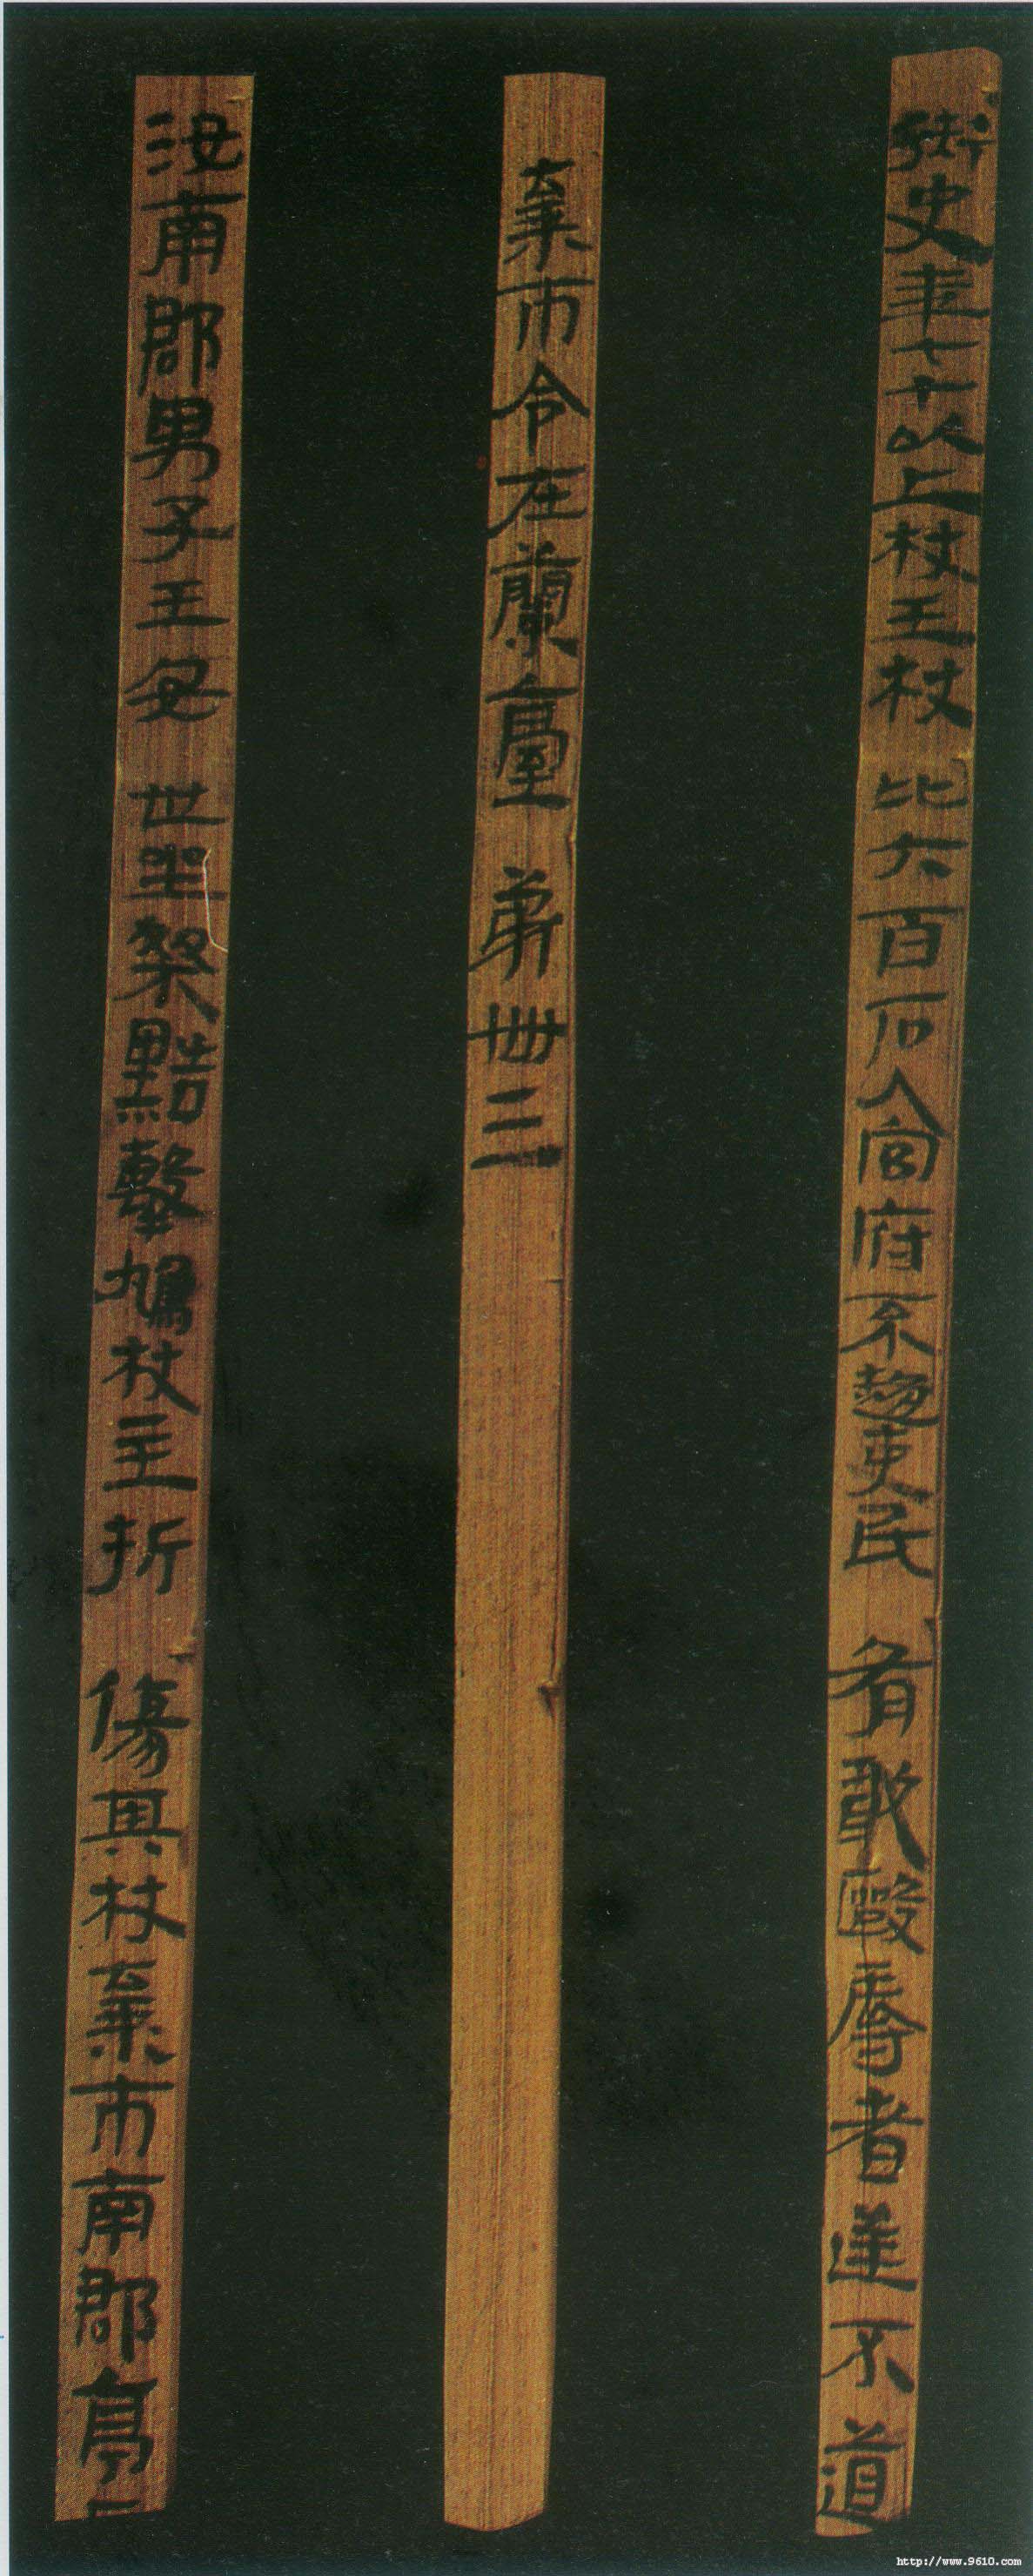 御史年七十以上杖王杖比六百石入官府不趨吏民有敢毆辱者逆不道
棄市令在蘭臺弟卌三
汝南郡男子王安世坐桀黠擊鳩杖主折傷其杖棄市南郡亭
http://www.9610.com